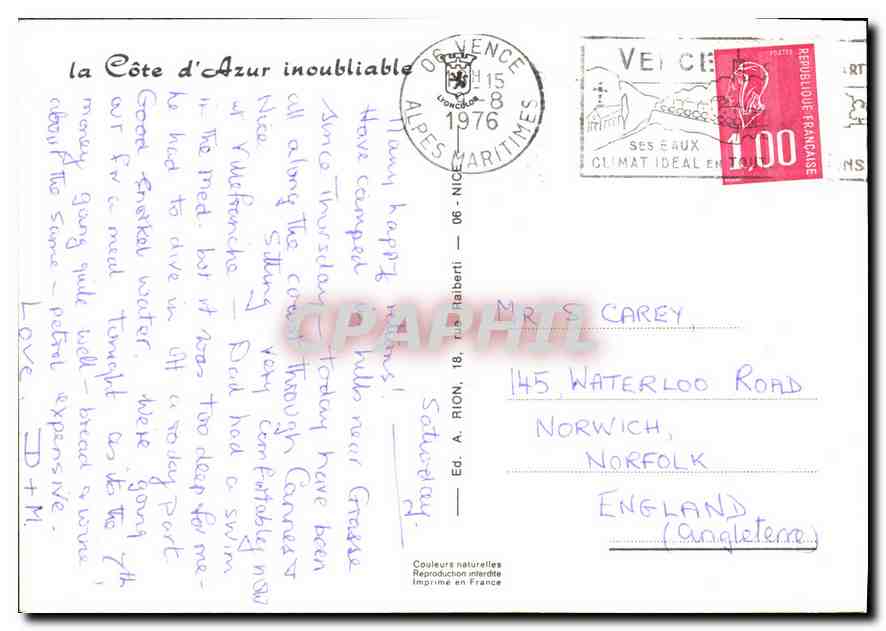 la Côte d'Azur inoubliable
Saturday.
Many happy returns!
Have camped in hills near Grasse
since Thursday – today have been
all along the coast through Cannes &
Nice. Sitting very comfortably now
at Villefranche – Dad had a swim
in the Med. but it was too deep for me –
he had to dive in off a rocky part.
Good snorkel water. We're going
out for a meal tonight as its the 7th
money going quite well – bread & wine
about the same – petrol expensive.
Love, D + M.
06 VENCE
H 15
- 8
1976
ALPES MARITIMES
LYONCOLOR
VENCE
SES EAUX
CLIMAT IDEAL EN TOUT
POSTES
REPUBLIQUE FRANÇAISE
1,00
Ed. A. RION, 18, rue Raiberti — 06 - NICE
MR S. CAREY,
145, WATERLOO ROAD
NORWICH,
NORFOLK
ENGLAND
(Angleterre)
Couleurs naturelles
Reproduction interdite
Imprimé en France
CPAPHIL